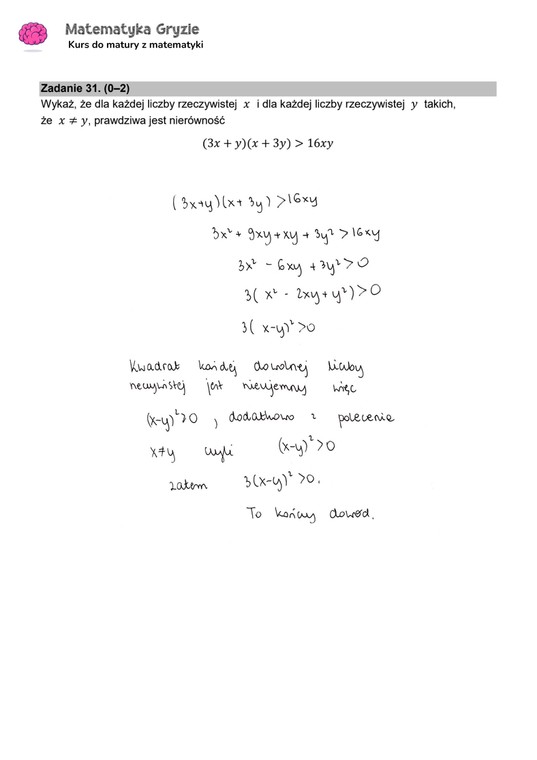 Matematyka Gryzie
Kurs do matury z matematyki
Zadanie 31. (0–2)
Wykaż, że dla każdej liczby rzeczywistej x i dla każdej liczby rzeczywistej y takich,
że x ≠ y, prawdziwa jest nierówność
(3x + y)(x + 3y) > 16xy
(3x+y)(x+3y) >16xy
3x² + 9xy + xy + 3y² > 16xy
3x² - 6xy + 3y² > 0
3( x² - 2xy + y²) > 0
3( x-y)² >0
Kwadrat każdej dowolnej liczby
rzeczywistej jest nieujemny więc
(x-y)² ≥ 0 , dodatkowo z polecenia
x≠y czyli (x-y)² > 0
zatem 3(x-y)² >0.
To kończy dowód.